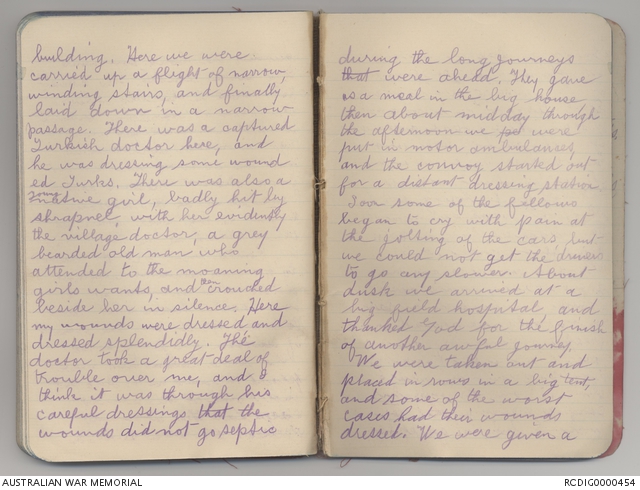 building. Here we were
carried up a flight of narrow,
winding stairs, and finally
laid down in a narrow
passage. There was a captured
Turkish doctor here, and
he was dressing some wound
ed Turks. There was also a
young native girl, badly hit by
shrapnel, with her evidently
the village doctor, a grey
bearded old man who
attended to the moaning
girls wants, and then crouched
beside her in silence. Here
my wounds were dressed and
dressed splendidly. The
doctor took a great deal of
trouble over me, and I
think it was through his
careful dressings that the
wounds did not go septic
during the long journeys
that were ahead. They gave
us a meal in the big house,
then about midday through
the afternoon we were
put in motor ambulances,
and the convoy started out
for a distant dressing station.
Soon some of the fellows
began to cry with pain at
the jolting of the cars, but
we could not get the drivers
to go any slower. About
dusk we arrived at a
big field hospital, and
thanked God for the finish
of another awful journey.
We were taken out and
placed in rows in a big tent,
and some of the worst
cases had their wounds
dressed. We were given a
AUSTRALIAN WAR MEMORIAL
RCDIG0000454